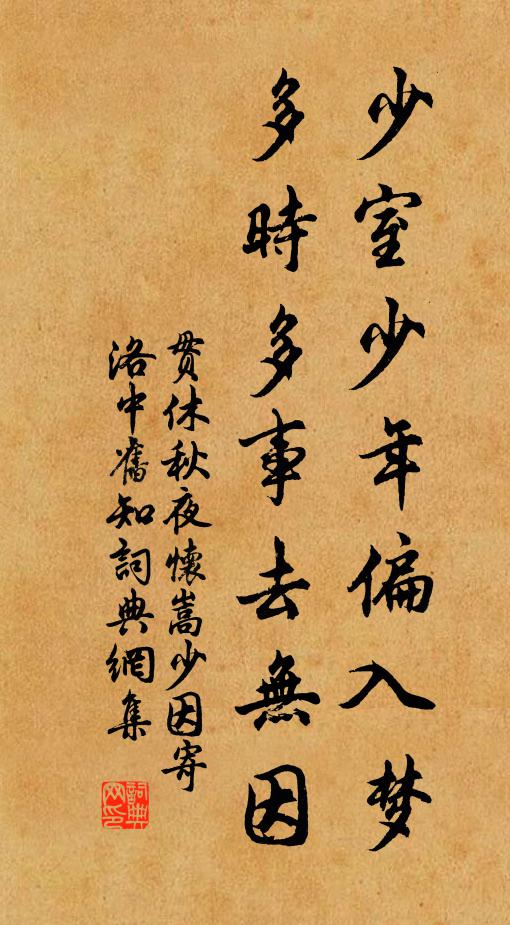 少室少年偏入梦
多時多事去無因
貫休秋夜懷嵩少因寄
洛中舊知詞典網集
詞典网印